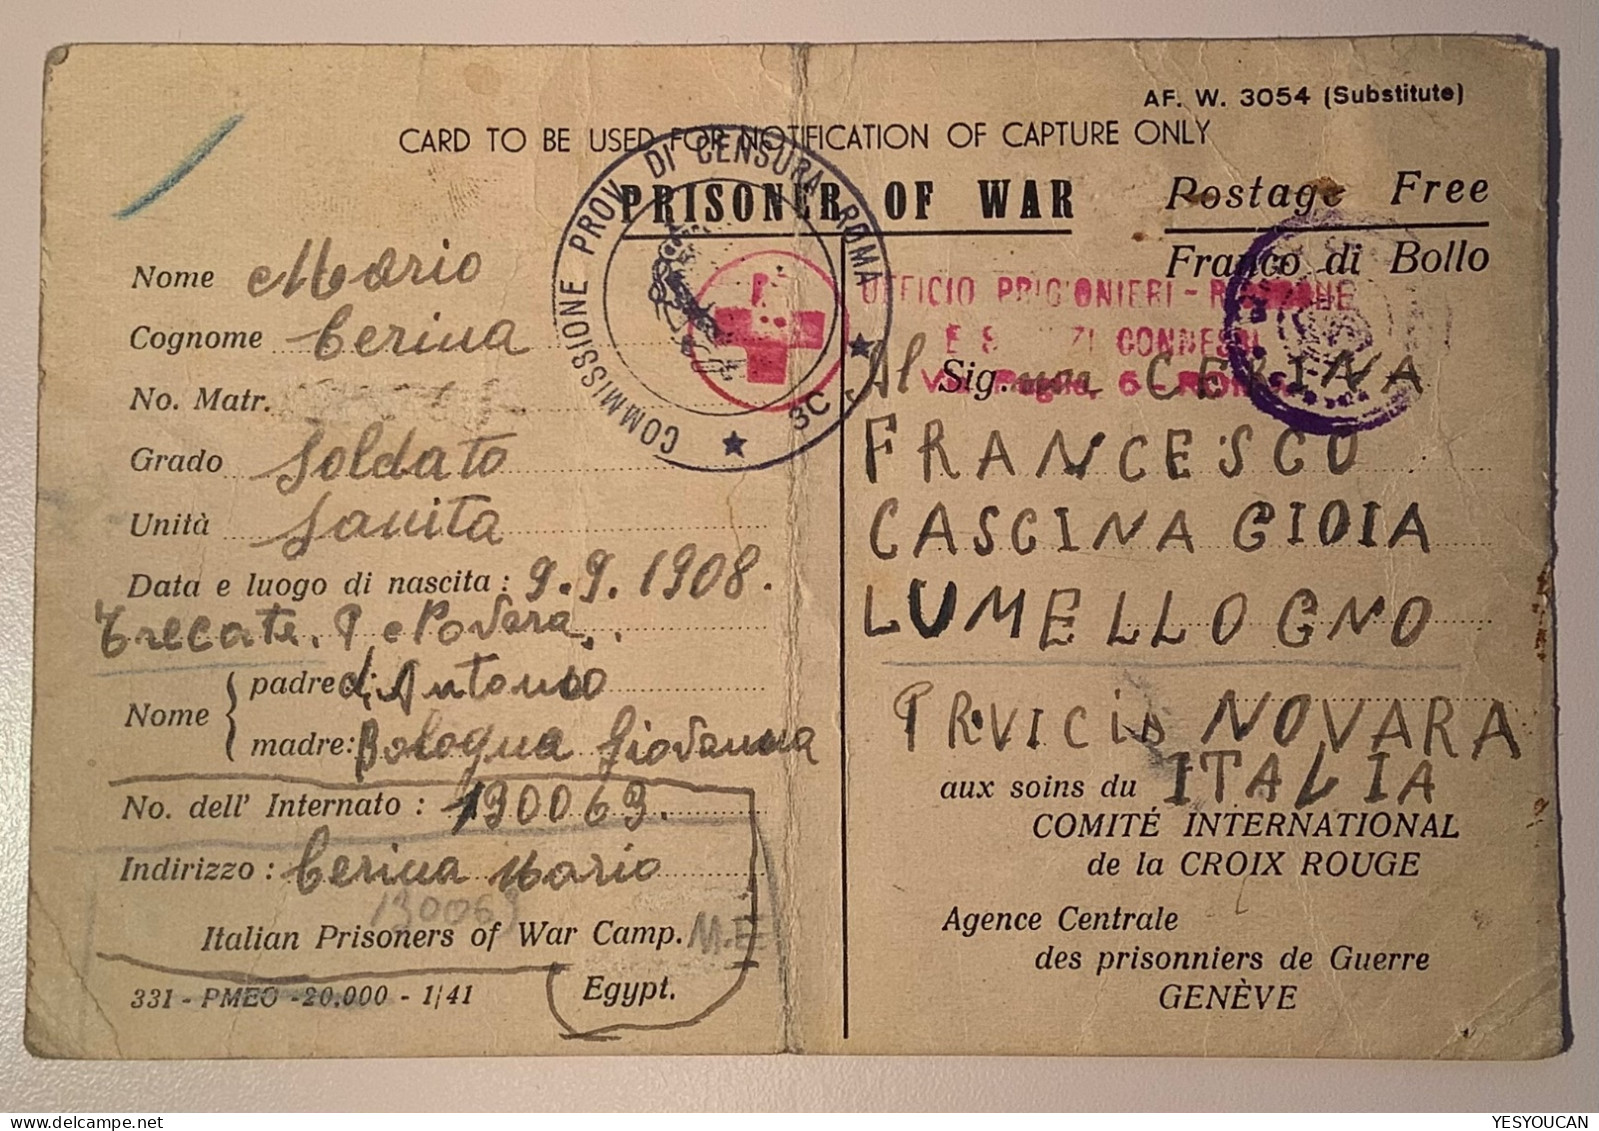 AF. W. 3054 (Substitute)
CARD TO BE USED FOR NOTIFICATION OF CAPTURE ONLY
PRISONER OF WAR
Postage Free
Franco di Bollo
COMMISSIONE PROV. DI CENSURA ROMA
3C
UFFICIO PRIGIONIERI -
CONNESSI
6 -
Nome Mario
Cognome Cerina
No. Matr.
Grado Soldato
Unità Sanita
Data e luogo di nascita : 9.9.1908.
Trecate. P Novara.
Nome
padre di Antonio
madre: Bologna Giovanna
No. dell' Internato : 190063.
Indirizzo : Cerina Mario
190063
Italian Prisoners of War Camp. M.E
Egypt.
331 - PMEO - 20.000 - 1/41
Al Sig. CERINA
FRANCESCO
CASCINA GIOIA
LUMELLOGNO
PRVICIA NOVARA
ITALIA
aux soins du
COMITÉ INTERNATIONAL
de la CROIX ROUGE
Agence Centrale
des prisonniers de Guerre
GENÈVE
YESYOUCAN